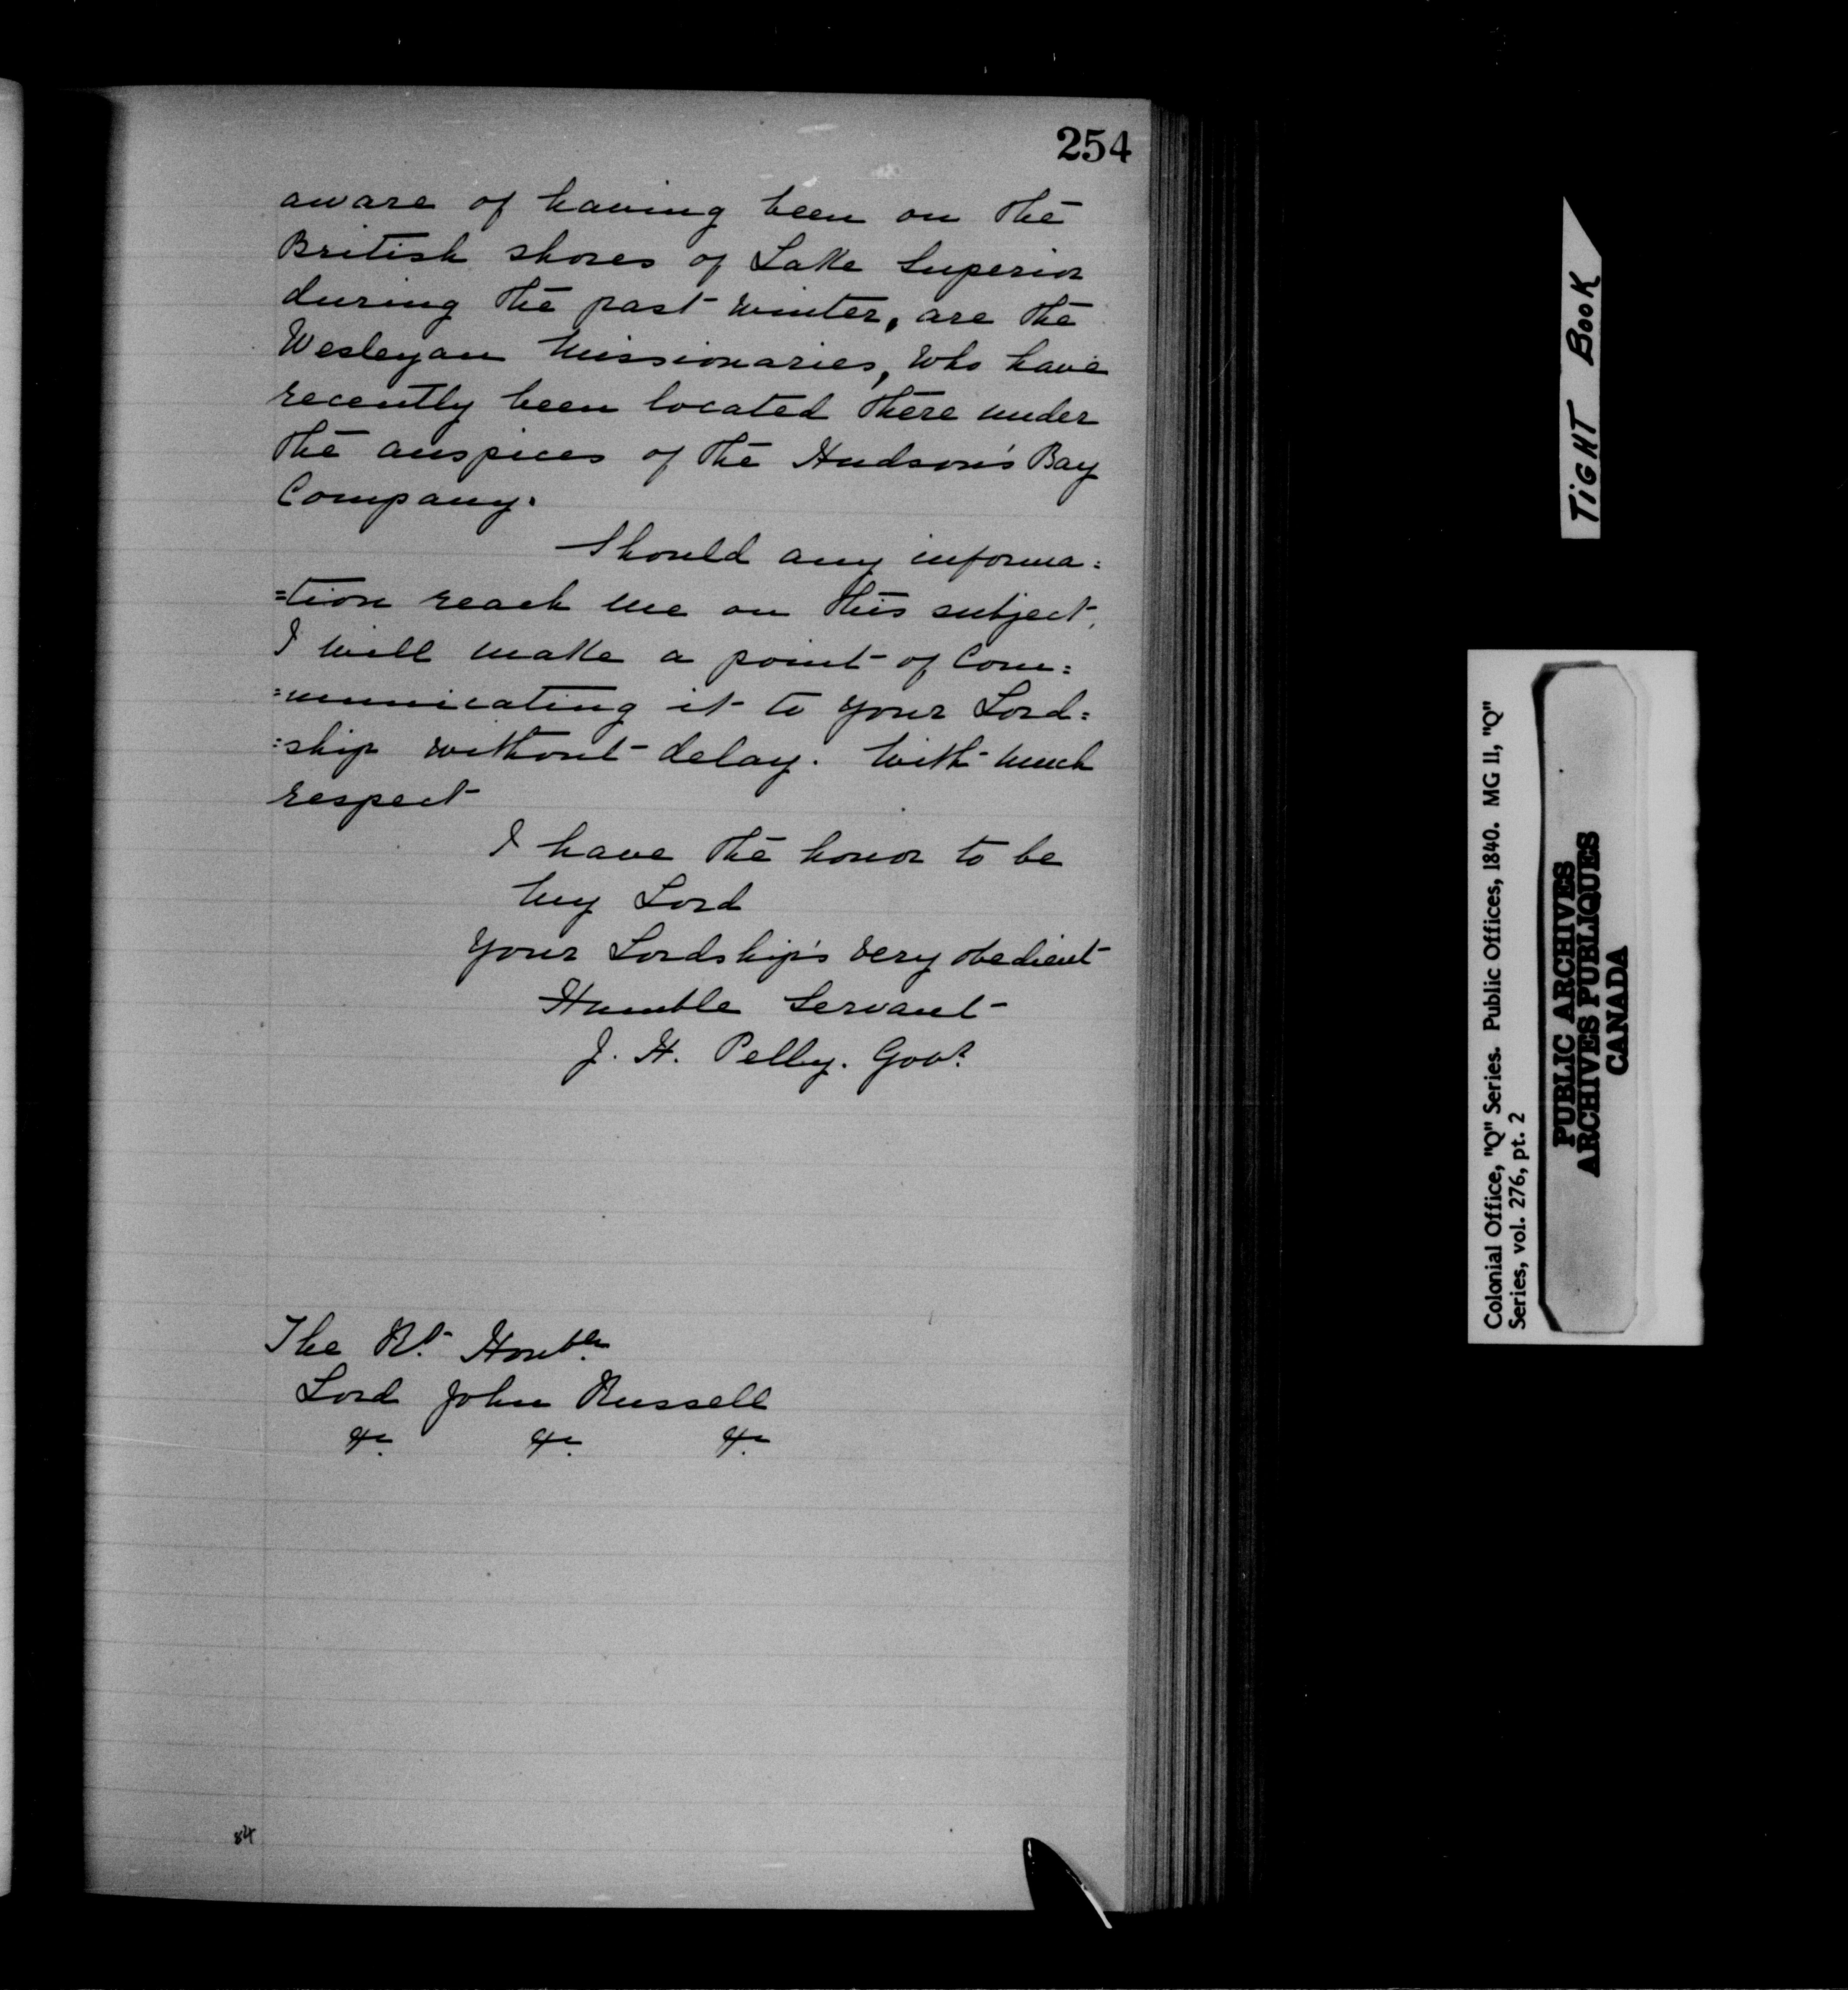 254
aware of having been on the
British shores of Lake Superior
during the past winter, are the
Wesleyan Missionaries, who have
recently been located there under
the auspices of the Hudson's Bay
Company.
Should any informa=
=tion reach me on this subject,
I will make a point of Com=
=municating it to your Lord=
=ship without delay. With much
respect
I have the honor to be
My Lord
Your Lordship's very obedient
Humble Servant
J. H. Pelly. Govr.
The Rt. Honble.
Lord John Russell
&c. &c. &c.
84
TIGHT BOOK
Colonial Office, "Q" Series. Public Offices, 1840. MG 11, "Q"
Series, vol. 276, pt. 2
PUBLIC ARCHIVES
ARCHIVES PUBLIQUES
CANADA